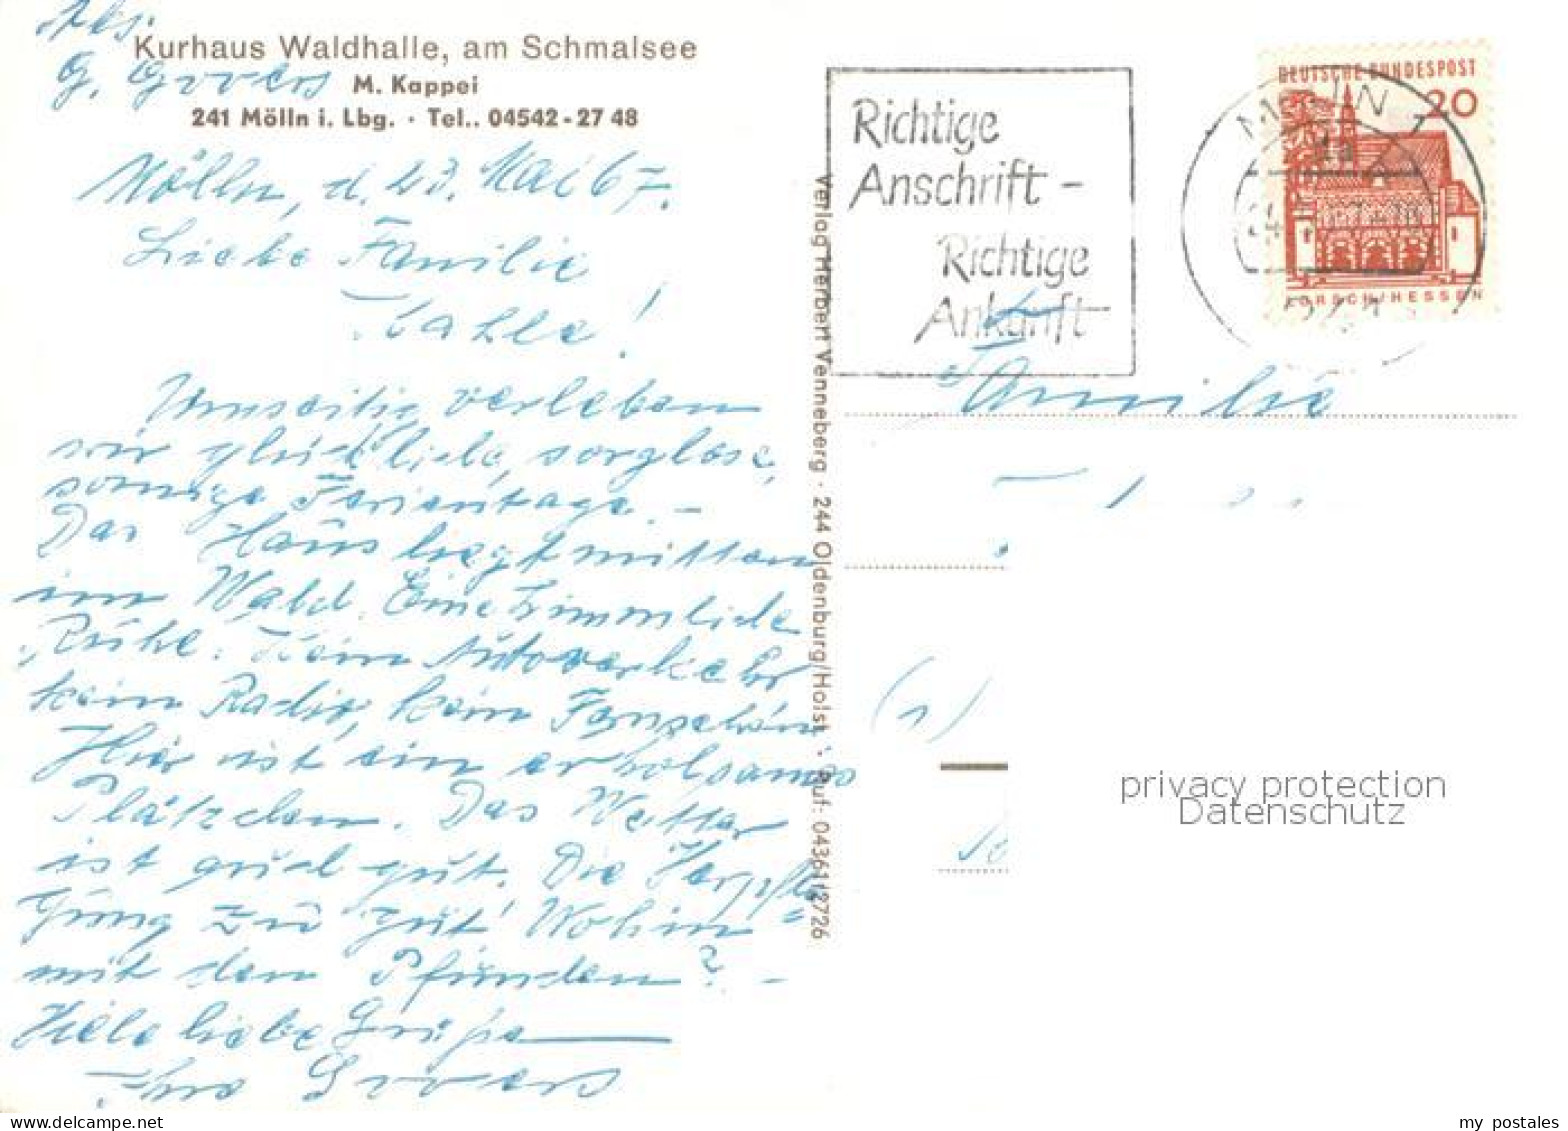 Abs.
G. Govers
Kurhaus Waldhalle, am Schmalsee
M. Kappei
241 Mölln i. Lbg. · Tel.. 04542-27 48
Mölln, d. 23. Mai 67.
Liebe Familie
Umseitig verleben
wir glückliche, sorglose,
sonnige Ferientage. –
Das Haus liegt mitten
im Wald. Eine himmlische
Ruhe. Kein Autoverkehr
kein Radio, kein Fernsehen
Hier ist ein erholsames
Plätzchen. Das Wetter
ist auch gut. Die Verpfle=
gung zu gut! Wohin
mit den Pfunden? –
Viele liebe Grüße
Ihre Govers
Verlag Herbert Venneberg · 244 Oldenburg/Holst. · Ruf: 04361/2726
Richtige
Anschrift –
Richtige
Ankunft
DEUTSCHE BUNDESPOST
20
LORSCH/HESSEN
Familie
privacy protection
Datenschutz
my postales